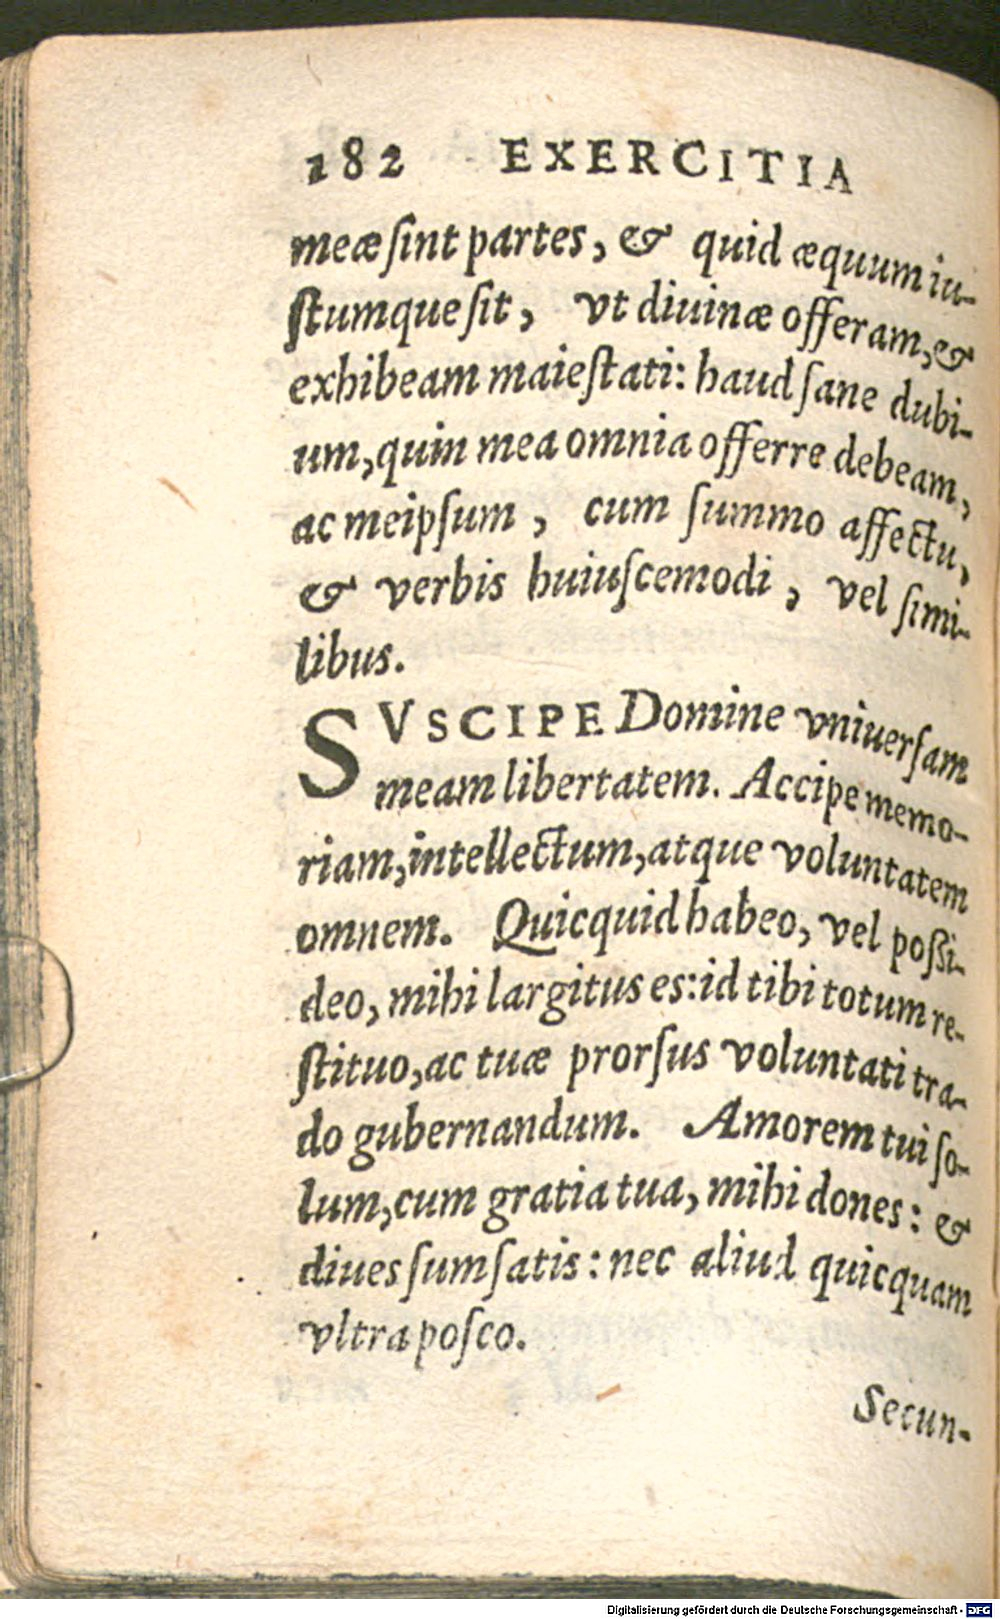 182 EXERCITIA
meæ ſint partes, & quid æquum iu-
ſtumque ſit, vt diuinæ offeram, &
exhibeam maieſtati: haud ſane dubi-
um, quin mea omnia offerre debeam,
ac meipſum, cum ſummo affectu,
& verbis huiuſcemodi, vel ſimi-
libus.
SVSCIPE Domine vniuerſam
meam libertatem. Accipe memo-
riam, intellectum, atque voluntatem
omnem. Quicquid habeo, vel poſſi-
deo, mihi largitus es: id tibi totum re-
ſtituo, ac tuæ prorſus voluntati tra-
do gubernandum. Amorem tui ſo-
lum, cum gratia tua, mihi dones: &
diues ſum ſatis: nec aliud quicquam
vltra poſco.
Secun-
Digitalisierung gefördert durch die Deutsche Forschungsgemeinschaft - DFG